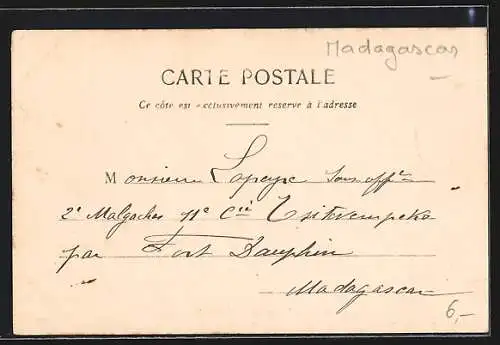 Madagascar
CARTE POSTALE
Ce côte est exclusivement reserve à l'adresse
Monsieur Lapeyre Sous offer
2e Malgaches 11e Cie Tsitivempeka
par Fort Dauphin
Madagascar
6,-